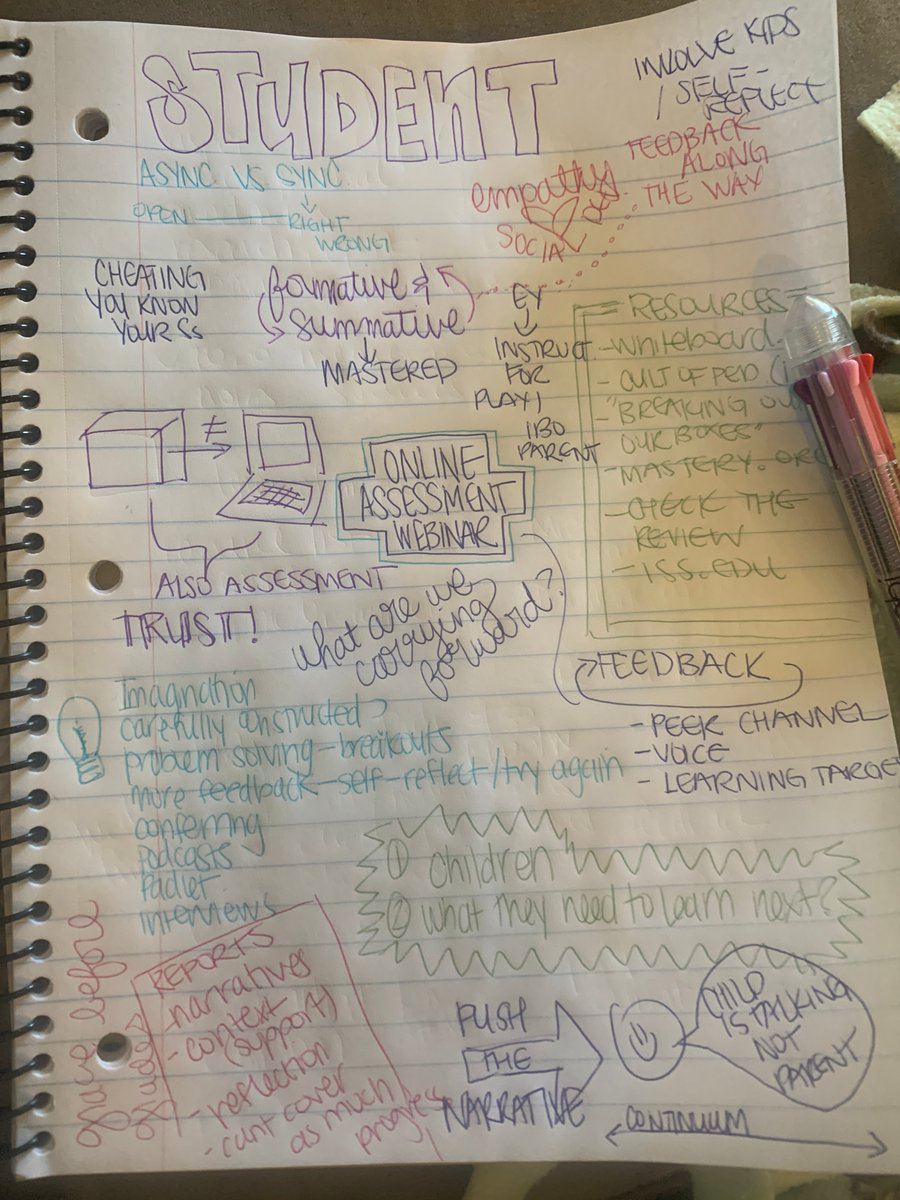 STUDENT
INVOLVE KIDS
/ SELF-
REFLECT
ASYNC VS SYNC
OPEN — RIGHT
WRONG
empathy
SOCIAL
FEEDBACK
ALONG
THE WAY
CHEATING
YOU KNOW
YOUR Ss
formative &
summative
MASTERED
EY
INSTRUCT
FOR
PLAY!
PARENT
RESOURCES
- Whiteboard.
- CULT OF PED
- "BREAKING OU
OUR BOXES"
- MASTERY. OR
- CHECK THE
REVIEW
- ISS.EDU
≠
ONLINE
ASSESSMENT
WEBINAR
ALSO ASSESSMENT
TRUST!
what are we
carrying
forward?
FEEDBACK
- PEER CHANNEL
- VOICE
- LEARNING TARGET
Imagination
carefully constructed?
problem solving - breakouts
more feedback - self-reflect/try again
conferring
podcasts
Padlet
interviews
① children
② what they need to learn next?
before
REPORTS
- narratives
- context
(support)
- reflection
- cant cover
as much
progress
PUSH
THE
NARRATIVE
CHILD
IS TALKING
NOT
PARENT
CONTINUUM